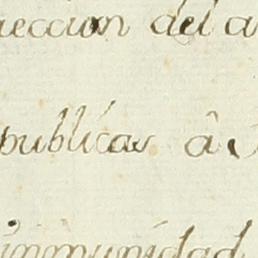 reccion del a
publicas â
inmunidad